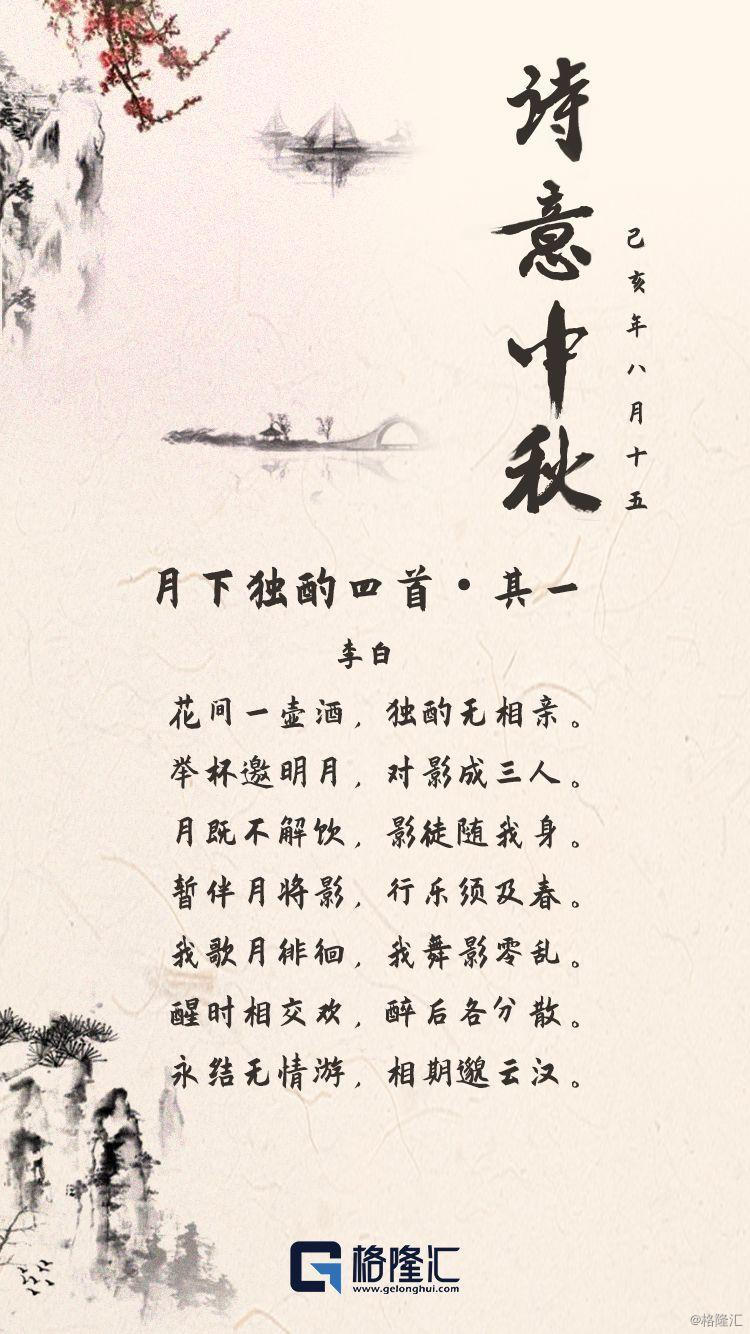 诗意中秋
己亥年八月十五
月下独酌四首·其一
李白
花间一壶酒，独酌无相亲。
举杯邀明月，对影成三人。
月既不解饮，影徒随我身。
暂伴月将影，行乐须及春。
我歌月徘徊，我舞影零乱。
醒时相交欢，醉后各分散。
永结无情游，相期邈云汉。
格隆汇
www.gelonghui.com
@格隆汇